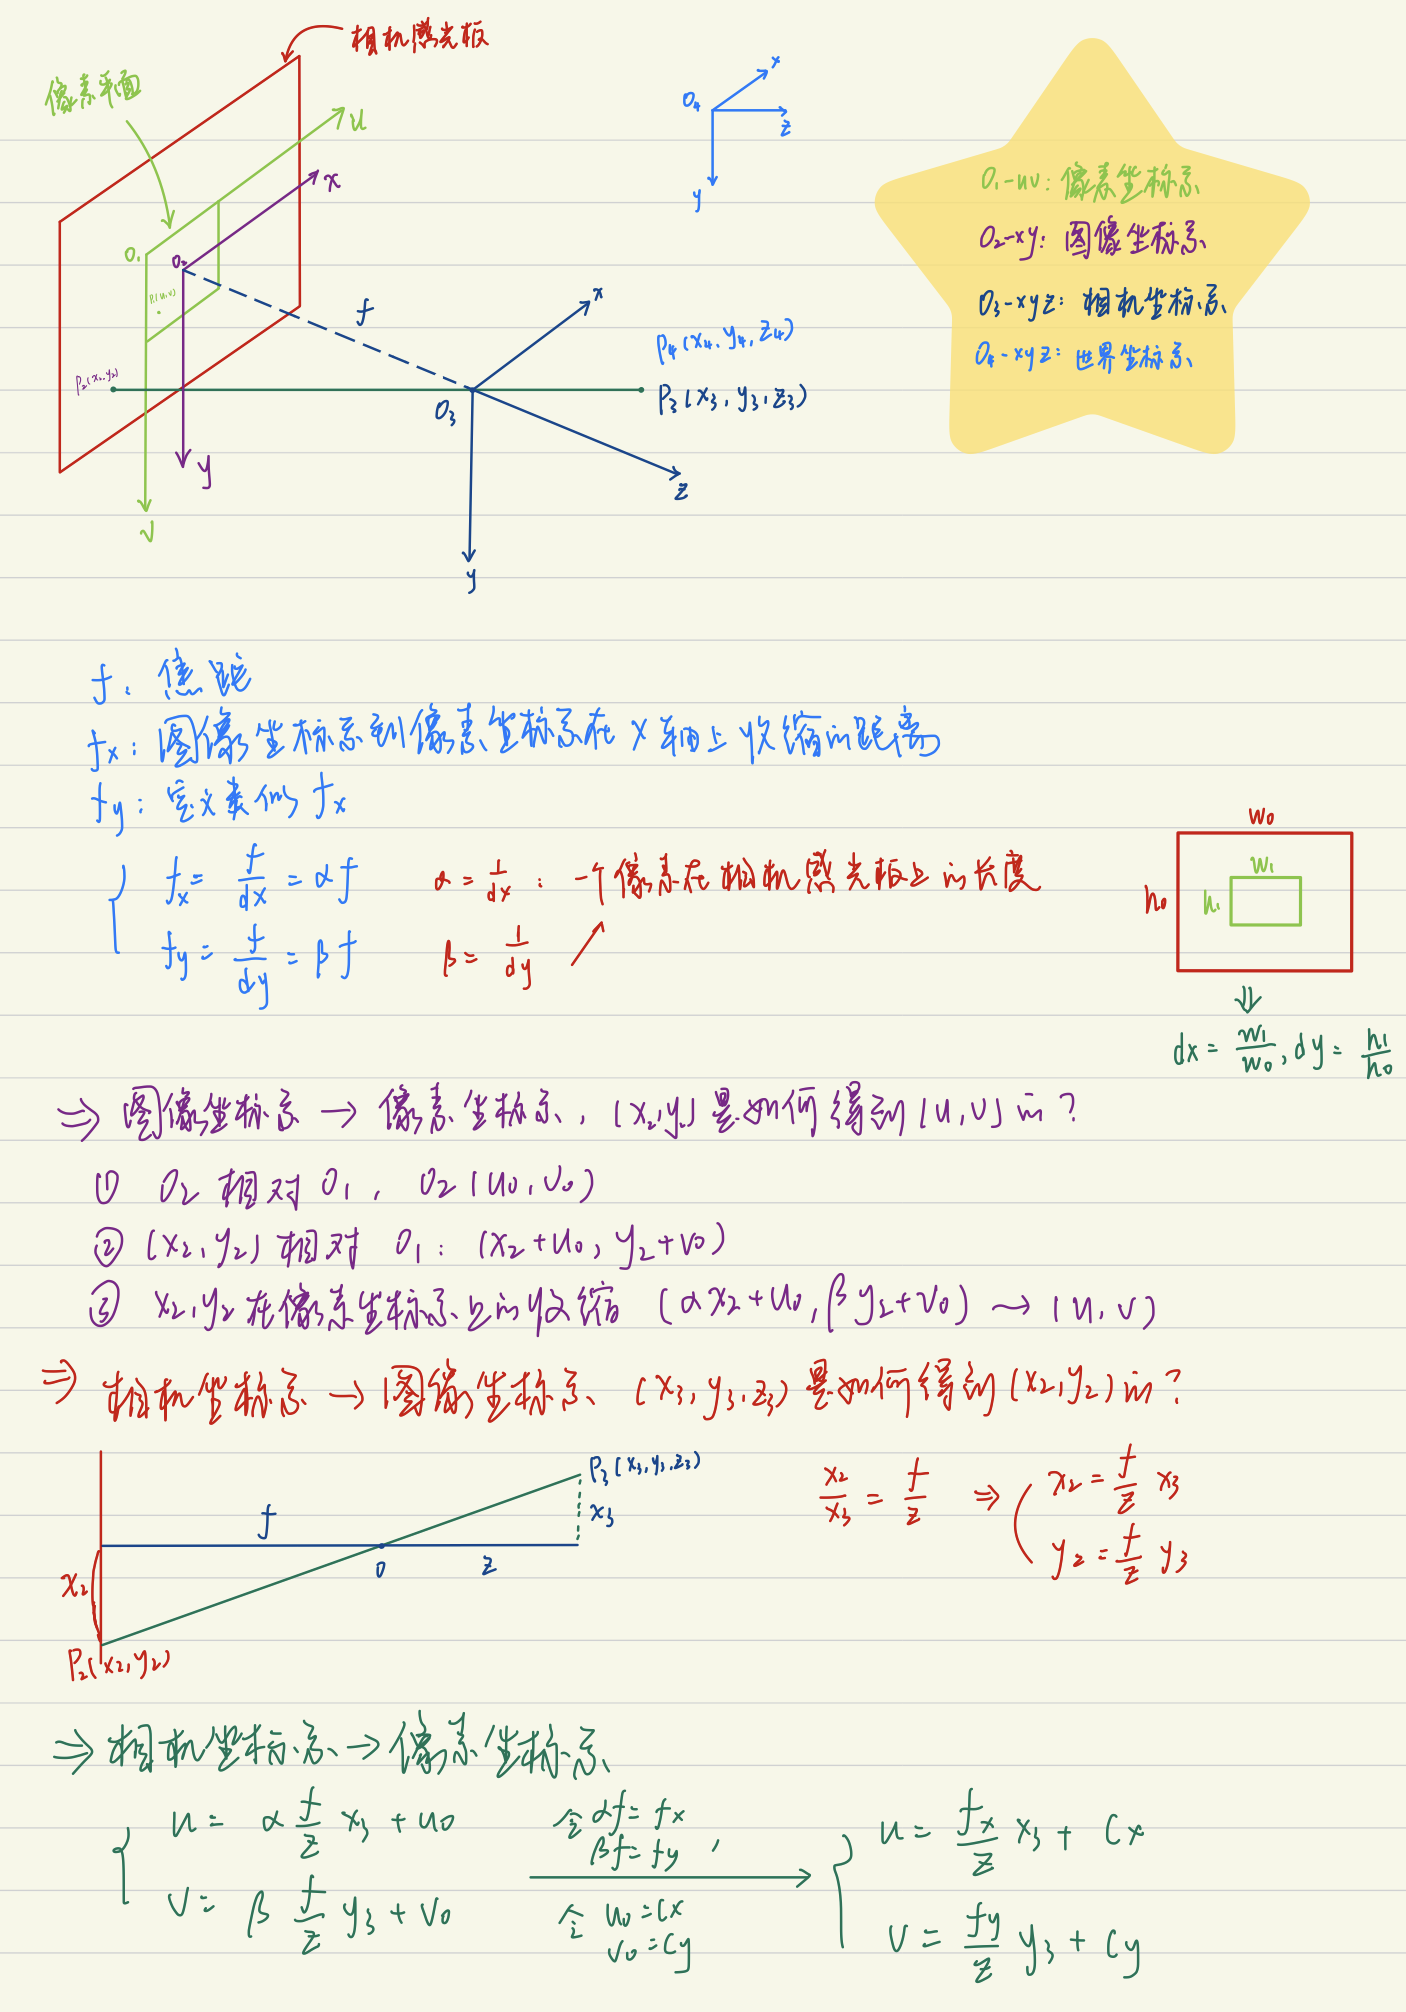 相机感光板
像素平面
u
x
O₁
O₂
P₁(u,v)
f
P₂(x₂,y₂)
y
v
O₄
x
z
y
x
P₄(x₄,y₄,z₄)
P₃(x₃,y₃,z₃)
O₃
z
y
O₁-uv:像素坐标系
O₂-xy:图像坐标系
O₃-xyz:相机坐标系
O₄-xyz:世界坐标系
f:焦距
fx:图像坐标系到像素坐标系在x轴上收缩的距离
fy:定义类似fx
fx = f/dx = αf
α = 1/dx:一个像素在相机感光板上的长度
fy = f/dy = βf
β = 1/dy
w₀
w₁
h₀
h₁
⇓
dx = w₁/w₀, dy = h₁/h₀
⇒ 图像坐标系 → 像素坐标系,(x₂,y₂)是如何得到(u,v)的?
① O₂相对O₁, O₂(u₀,v₀)
② (x₂,y₂)相对 O₁: (x₂+u₀, y₂+v₀)
③ x₂,y₂在像素坐标系上的收缩 (αx₂+u₀, βy₂+v₀) → (u,v)
⇒ 相机坐标系 → 图像坐标系 (x₃,y₃,z₃)是如何得到(x₂,y₂)的?
P₃(x₃,y₃,z₃)
f
x₃
O
z
x₂
P₂(x₂,y₂)
x₂/x₃ = f/z ⇒
x₂ = f/z x₃
y₂ = f/z y₃
⇒ 相机坐标系 → 像素坐标系
u = α f/z x₃ + u₀
v = β f/z y₃ + v₀
令 αf = fx
βf = fy,
令 u₀ = Cx
v₀ = Cy
u = fx/z x₃ + Cx
v = fy/z y₃ + Cy